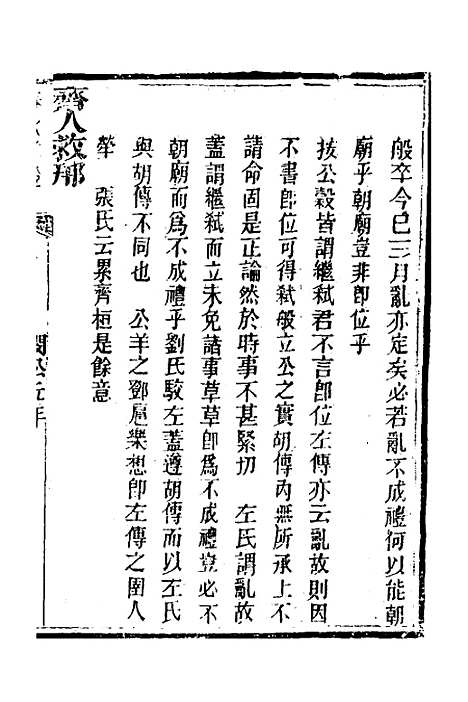 般卒今已三月亂亦定矣必若亂不成禮何以能朝
廟乎朝廟豈非卽位乎
按公穀皆謂繼弑君不言卽位左傳亦云亂故則因
不書卽位可得弑般立公之實胡傳內無所承上不
請命固是正論然於時事不甚緊切　左氏謂亂故
蓋謂繼弑而立未免諸事草草卽爲不成禮豈必不
朝廟而爲不成禮乎劉氏駁左蓋遵胡傳而以左氏
與胡傳不同也　公羊之鄧扈樂想卽左傳之圉人
犖　張氏云累齊桓是餘意
齊人救邢
閔公元年